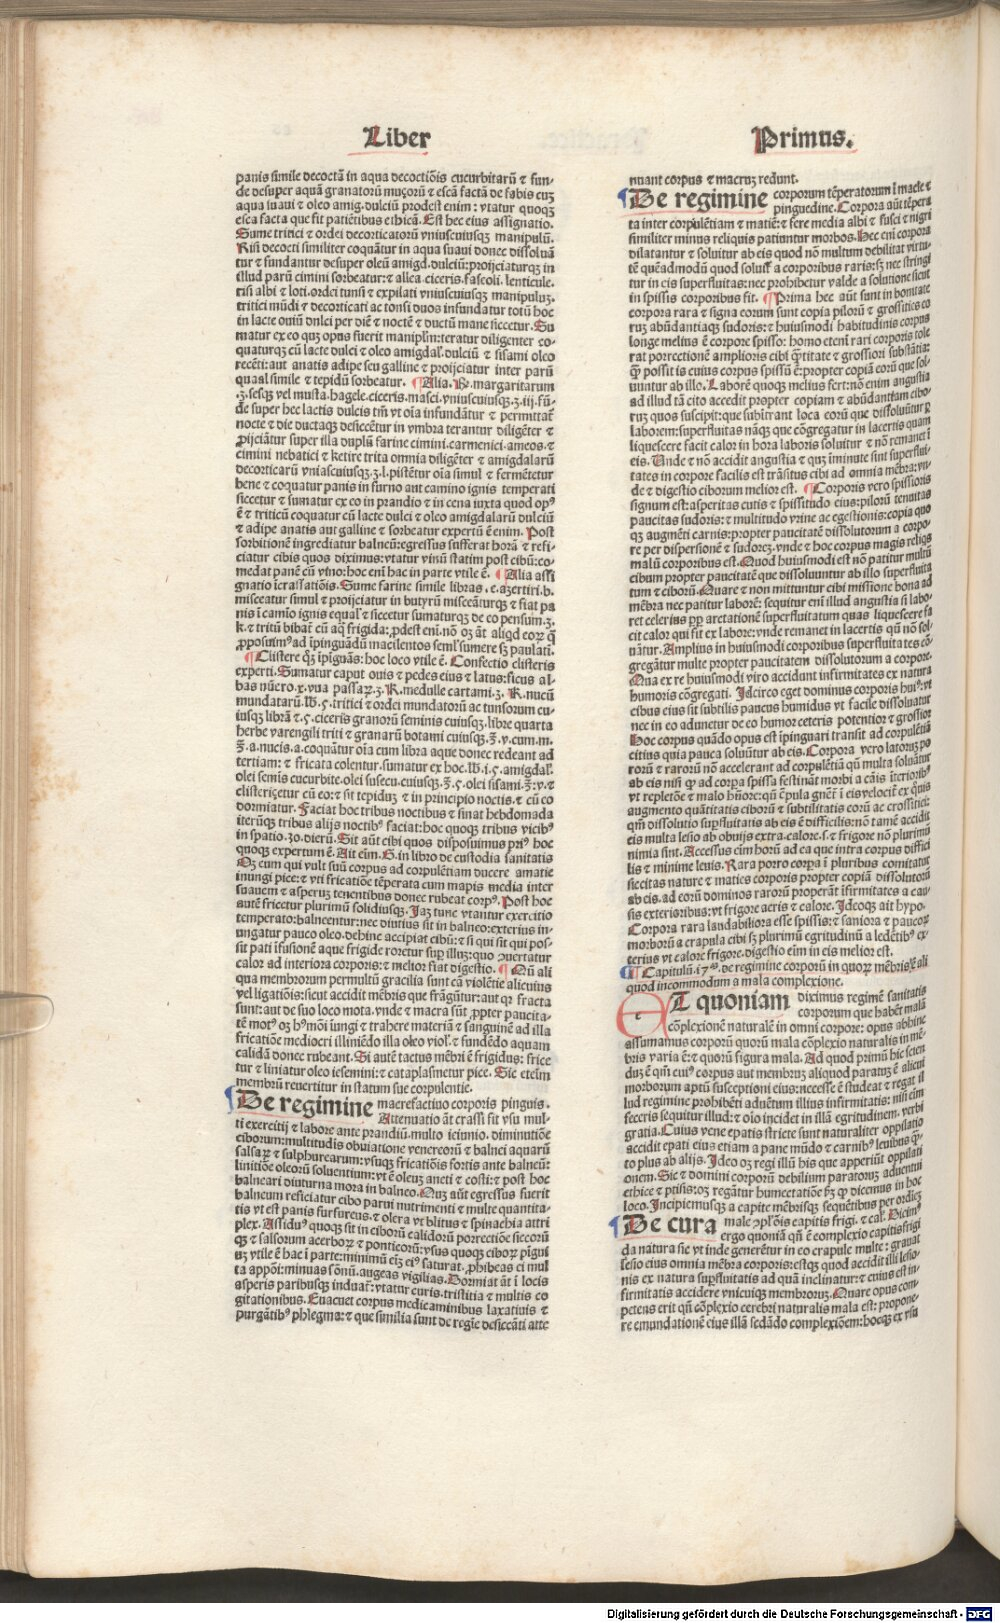 Liber
panis simile decoctā in aqua decoctiōis cucurbitarū ⁊ fun-
de desuper aquā granatorū muzorū ⁊ escā factā de fabis cuꝫ
aqua suaui ⁊ oleo amig. dulciū prodest enim: vtatur quoqꝫ
esca facta que fit patiētibus ethicā. Est hec eius assignatio.
Sume tritici ⁊ ordei decorticatorū vniuscuiusqꝫ manipulū.
Risi decocti similiter coquātur in aqua suaui donec dissoluā
tur ⁊ fundantur desuper oleū amigd. dulciū: proijciaturqꝫ in
illud parū cimini sorbeatur: ⁊ alica. ciceris. faseoli. lenticule.
risi albi ⁊ loti. ordei tunsi ⁊ expilati vniuscuiusqꝫ manipuluꝫ.
tritici mūdi ⁊ decorticati ac tonsi duos infundatur totū hoc
in lacte ouiū dulci per diē ⁊ noctē ⁊ ductū mane siccetur. Su
matur ex eo quꝫ opus fuerit maniplīn: teratur diligenter co-
quaturqꝫ cū lacte dulci ⁊ oleo amigdal. dulciū ⁊ sisami oleo
recēti: aut anatis adipe seu galline ⁊ proijciatur inter parū
quasi simile ⁊ tepidū sorbeatur. ¶ Alia. ℞. margaritarum
.ʒ. sesqꝫ vel musta. hagele. ciceris. masci. vniuscuiusqꝫ .ʒ. iij. fū-
de super hec lactis dulcis tm̄ vt oīa infundātur ⁊ permittat̄
nocte ⁊ die ductaqꝫ desiccētur in vmbra terantur diligēter ⁊
ꝓijciātur super illa duplū farine cimini. carmenici. ameos. ⁊
cimini nebatici ⁊ ketire trita omnia diligēter ⁊ amigdalarū
decorticarū vniascuiusqꝫ .ʒ. l. pistētur oīa simul ⁊ fermētetur
bene ⁊ coquatur panis in furno aut camino ignis temperati
siccetur ⁊ sumatur ex eo in prandio ⁊ in cena iuxta quod opꝰ
ē ⁊ triticū coquatur cū lacte dulci ⁊ oleo amigdalarū dulciū
⁊ adipe anatis aut galline ⁊ sorbeatur expertū ē enim. Post
sorbitionē ingrediatur balneū: egressus sufferat horā ⁊ refi-
ciatur cibis quos diximus: vtatur vinū statim post cibū: co-
medat panē cū vino: hoc enī hac in parte vtile ē. ¶ Alia assi
gnatio īcrassatiōis. Sume farine simile libras .c. azertiri. b.
misceatur simul ⁊ proijciatur in butyrū misceāturqꝫ ⁊ fiat pa
nis ī camīo ignis equal̄ ⁊ siccetur sumaturqꝫ de eo pensum .ʒ.
k. ⁊ tritū bibat̄ cū aq̄ frigida: ꝓdest enī. nō oꝫ āt aliqd eoꝝ q̄
ꝓposuimꝰ ad īpinguādū macilentos seml̄ sumere sꝫ paulatī.
¶ Clistere qꝫ īpīguās: hoc loco vtile ē. Confectio clisteris
experti. Sumatur caput ouis ⁊ pedes eius ⁊ latus: ficus al-
bas nūero .x. vua passaꝝ .ʒ. K. medulle cartami .ʒ. K. nucū
iusqꝫ librā ⁊ .ς. ciceris granorū seminis cuiusqꝫ. libre quarta
tertiam: ⁊ fricata colentur. sumatur ex hoc
dormiatur. Faciat hoc tribus noctibus ⁊ sinat hebdomada
iterūqꝫ tribus alijs noctibꝰ faciat: hoc quoqꝫ tribus vicibꝰ
in spatio .30. dierū. Sit aūt cibi quos disposuimus priꝰ hoc
quoqꝫ expertum ē. Ait eīm .G. in libro de custodia sanitatis
Oꝫ eum qui vult suū corpus ad corpulētiam ducere amatie
inungi pice: ⁊ vti fricatiōe tēperata cum mapis media inter
suauem ⁊ asperuꝫ tenentibus donec rubeat corpꝰ. Post hoc
autē fricetur plurimū solidiusqꝫ. Jaꝫ tunc vtantur exercitio
temperato: balneentur: nec diutius sit in balneo: exterius in-
ungatur pauco oleo. dehinc accipiat cibū: ⁊ si qui sit qui pos-
sit pati īfusionē aque frigide roretur sup̄ illuꝫ: quo ꝯuertatur
calor ad interiora corporis: ⁊ melior fiat digestio. ¶ Qn̄ ali
qua membrorum permultū gracilia sunt cā violētie alicuius
vel ligatiōis: sicut accidit mēbris que frāgūtur: aut qꝫ fracta
sunt: aut de suo loco mota. vnde ⁊ macra sūt ꝓpter paucita-
tē motꝰ oꝫ hꝰmōi iungi ⁊ trahere materiā ⁊ sanguinē ad illa
fricatiōe mediocri illiniēdo illa oleo viol̄. ⁊ fundēdo aquam
calidā donec rubeant. Si autē tactus mēbri ē frigidus: frice
tur ⁊ liniatur oleo iesemini: ⁊ cataplasmetur pice. Sic eteīm
membrū reuertitur in statum sue corpulentie.
De regimine macrefactiuo corporis pinguis.
Attenuatio āt crassi fit vsu mul-
ti exercitij ⁊ labore ante prandiū. multo ieiunio. diminutiōe
ciborum: multitudis obuiatione venereorū ⁊ balnei aquarū
salsaꝝ ⁊ sulphurearum: vsuqꝫ fricatiōis fortis ante balneū:
linitiōe oleorū soluentium: vt ē oleuꝫ aneti ⁊ costi: ⁊ post hoc
balneari diuturna mora in balneo. Quꝫ aūt egressus fuerit
balneum reficiatur cibo parui nutrimenti ⁊ multe quantita-
tis vt est panis furfureus. ⁊ olera vt blitus ⁊ spinachia attri
plex. Assiduꝰ quoqꝫ sit in ciborū calidorū porrectiōe siccorū
qꝫ ⁊ salsorum acerboꝝ ⁊ ponticorū: vsus quoqꝫ ciboꝝ pīgui
uꝫ vtile ē hac ī parte: minimū eīꝫ eiꝰ saturat. ꝓhibeas ei mul
ta appōi: minuas sōnū. augeas vigilias. Dormiat āt ī locis
asperis paribusqꝫ induat̄: vtatur curis. tristitia ⁊ multis co
gitationibus. Euacuet corpus medicaminibus laxatiuis ⁊
purgātibꝰ phlegma: ⁊ que similia sunt de regīe desiccāti atte
Primus.
nuant corpus ⁊ macruꝫ redunt.
De regimine corporum tēperatorum ī macie ⁊
pinguedine. Corpora aūt tēpera
ta inter corpulētiam ⁊ matiē: ⁊ fere media albi ⁊ fusci ⁊ nigri
similiter minus reliquis patiuntur morbos. Hec enī corpora
dilatantur ⁊ soluitur ab eis quod nō multum debilitat virtu-
tē quēadmodū quod soluit̄ a corporibus raris: sꝫ nec stringi
tur in eis superfluitas: nec prohibetur valde a solutione sicut
in spissis corporibus fit. ¶ Prima hec aūt sunt in bonitate
corpora rara ⁊ signa eorum sunt copia pilorū ⁊ grossities eo
ruꝫ abūdantiaqꝫ sudoris: ⁊ huiusmodi habitudinis corpus
longe melius ē corpore spisso: homo etenī rari corporis tole
rat porrectionē amplioris cibi q̄titate ⁊ grossiori substātia:
ꝙ possit is cuius corpus spissū ē: propter copiā eorū que sol-
uuntur ab illo. Laborē quoqꝫ melius fert: nō enim angustia
ad illud tā cito accedit propter copiam ⁊ abūdantiam cibo-
ruꝫ quos suscipit: que subītrant loca eorū que dissoluūtur ꝑ
laborem: superfluitas nāqꝫ que cōgregatur in lacertis quam
liquescere facit calor in hora laboris soluitur ⁊ nō remanet ī
eis. Unde ⁊ nō accidit angustia ⁊ quꝫ īminute sint superflui-
tates in corpore facilis est trāsitus cibi ad omnia mēbra: vn-
de ⁊ digestio ciborum melior est. ¶ Corporis vero spissioris
signum est: asperitas cutis ⁊ spissitudo eius: pilorū tenuitas
paucitas sudoris: ⁊ multitudo vrine ac egestionis: copia quo
qꝫ augmēti carnis: propter paucitatē dissolutorum a corpo-
re per dispersionē ⁊ sudorez. vnde ⁊ hoc corpus magis reliqs
malū corporibus est. Quod huiusmodi est nō patitur multū
cibum propter paucitatē que dissoluuntur ab illo superfluita
tum ⁊ ciborū. Quare ⁊ non mittuntur cibi missione bona ad
mēbra nec patitur laborē: sequitur enī illud angustia si labo-
ret celerius ꝓp̄ aretationē superfluitatum quas liquescere fa
cit calor qui fit ex labore: vnde remanet in lacertis qū nō sol-
uātur. Amplius in huiusmodi corporibus superfluitates cō-
gregātur multe propter paucitatem dissolutorum a corpore.
Qua ex re huiusmodi viro accidunt infirmitates ex natura
humoris cōgregati. Jdcirco eget dominus corporis huiꝰ: vt
cibus eius sit subtilis paucus humidus vt facile dissoluatur
nec in eo adunetur de eo humor ceteris potentior ⁊ grossior
Hoc corpus quādo opus est īpinguari transit ad corpulētiā
citius quia pauca soluūtur ab eis. Corpora vero latoruꝫ po
rorū ⁊ rarorū nō accelerant ad corpulētiā qū multa soluātur
ab eis nisi ꝙ ad corpa spissa festināt morbi a cāis īterioribꝰ
vt repletōe ⁊ malo hūore: qū ē pula gnēt̄ ī eis velocit̄ ex q̄uis
augmento quātitatis ciborū ⁊ subtilitatis eorū ac crossitiei:
qm̄ dissolutio sup̄fluitatis ab eis ē difficilis: nō tamē accidit
eis multa lesio ab obuijs extra. calore .s. ⁊ frigore nō plurimū
nimia sint. Accessus eīm horū ad ea que intra corpus diffici
lis ⁊ minime leuis. Rara porro corpa ī pluribus comitatur
siccitas nature ⁊ maties corporis propter copiā dissolutorū
ab eis. ad eorū dominos rarorū properāt īfirmitates a cau-
sis exterioribus: vt frigore aeris ⁊ calore. Jdeoqꝫ ait hypo.
Corpora rara laudabiliora esse spissis: ⁊ saniora ⁊ paucoꝝ
morborū a crapula cibi sꝫ plurimū egritudinū a ledētibꝰ ex-
terius vt calore frigore. digestio eīm in eis melior est.
¶ Capitulū .17ᵐ. de regimine corporū in quoꝝ mēbris ē ali
quod incommodum a mala complexione.
ET quoniam diximus regimē sanitatis
corporum que habēt malā
cōplexionē naturalē in omni corpore: opus abhinc
assumamus corporū quorū mala cōplexio naturalis in mē-
bris varia ē: ⁊ quorū figura mala. Ad quod primū hic scien
duꝫ ē qm̄ cuiꝰ corpus aut membruꝫ aliquod paratuꝫ ē alicui
morborum aptū susceptioni eius: necesse ē studeat ⁊ regat il
lud regimine prohibēti aduētum illius infirmitatis: nisi eīm
feceris sequitur illud: ⁊ oīo incidet in illā egritudinem. verbi
gratia. Cuius vene epatis stricte sunt naturaliter oppilatio
accidit epati eius etiam a pane mūdo ⁊ carnibꝰ leuibus q̄-
to plus ab alijs. Jdeo oꝫ regi illū his que apperiūt oppilati
onem. Sic ⁊ domini corporū debilium paratoruꝫ aduentui
ethice ⁊ ptisis: oꝫ regātur humectatiōe sꝫ ꝙ dicemus in hoc
loco. Jncipiemusqꝫ a capite mēbrisqꝫ sequētibus per ordinē
De cura male ꝯplōis capitis frigi. ⁊ cal. Dicimꝰ
ergo quoniā qn̄ ē complexio capitis frigi
da natura sic vt inde generētur in eo crapule multe: grauat
lesio eius omnia mēbra corporis: estqꝫ quod accidit illi lesio-
nis ex natura sup̄fluitatis ad quā inclinatur: ⁊ cuius est in-
firmitatis accidere vnicuiqꝫ membroruꝫ. Quare opus com-
petens erit qn̄ cōplexio cerebri naturalis mala est: propone-
re emundationē eius illā sedādo complexiōem: hocqꝫ ex vsu
Digitalisierung gefördert durch die Deutsche Forschungsgemeinschaft - DFG